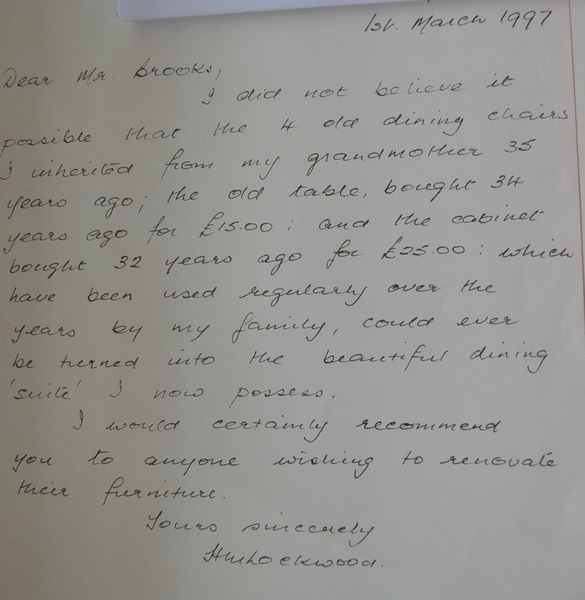 1st. March 1997
Dear Mr. Brooks,
I did not believe it
possible that the 4 old dining chairs
I inherited from my grandmother 35
years ago; the old table, bought 34
years ago for £15.00; and the cabinet
bought 32 years ago for £25.00: which
have been used regularly over the
years by my family, could ever
be turned into the beautiful dining
'suite' I now possess.
I would certainly recommend
you to anyone wishing to renovate
their furniture.
Yours sincerely
Lockwood.